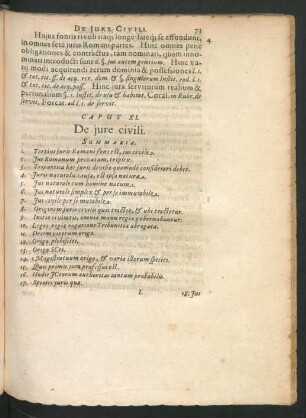 DE JURE CIVILI. 73
Hujus fontis rivuli itaq; longe lateq; se effundunt, 4.
in omnes ferè juris Romani partes. Hinc omnes penè
obligationes & contractus, tam nominati, quàm innominati
introducti sunt d. §. jus autem gentium. Hinc varii
modi acquirendi rerum dominia & possessiones l. 1.
& tot. tit. ff. de acq. rer. dom. & §. singulorum Instit. eod. l. 1.
& tot. tit. de acq. poss. Hinc jura servitutum realium &
personalium §. 1. Instit. de usu & habitat. Cotal. in Rubr. de
servit. Forcat. ad l. 1. de servit.
CAPUT XI.
De jure civili.
SUMMARIA.
1. Tertius juris Romani fons est, jus civile.
2. Jus Romanum privatum, triplex.
3. Tripartita hæc juris divisio quomodo considerari debet.
4. Juris naturalis causa, est ipsa natura.
5. Jus naturale cum homine natum.
6. Jus naturale simplex & per se immutabile.
7. Jus civile per se mutabile.
8. Originem juris civilis quis tractet, & ubi tractetur.
9. Initio civitatis, omnia manu regia gubernabantur.
10. Leges regiæ rogatione Tribunitia abrogatæ.
11. Decemvirorum origo.
12. Origo plebisciti.
13. Origo SCti.
14. Magistratuum origo, & variæ istorum species.
15. Quis primus jura professus est.
16. Hodie JCtorum authoritas tantum probabilis.
17. Species juris quæ.
L 18. Jus